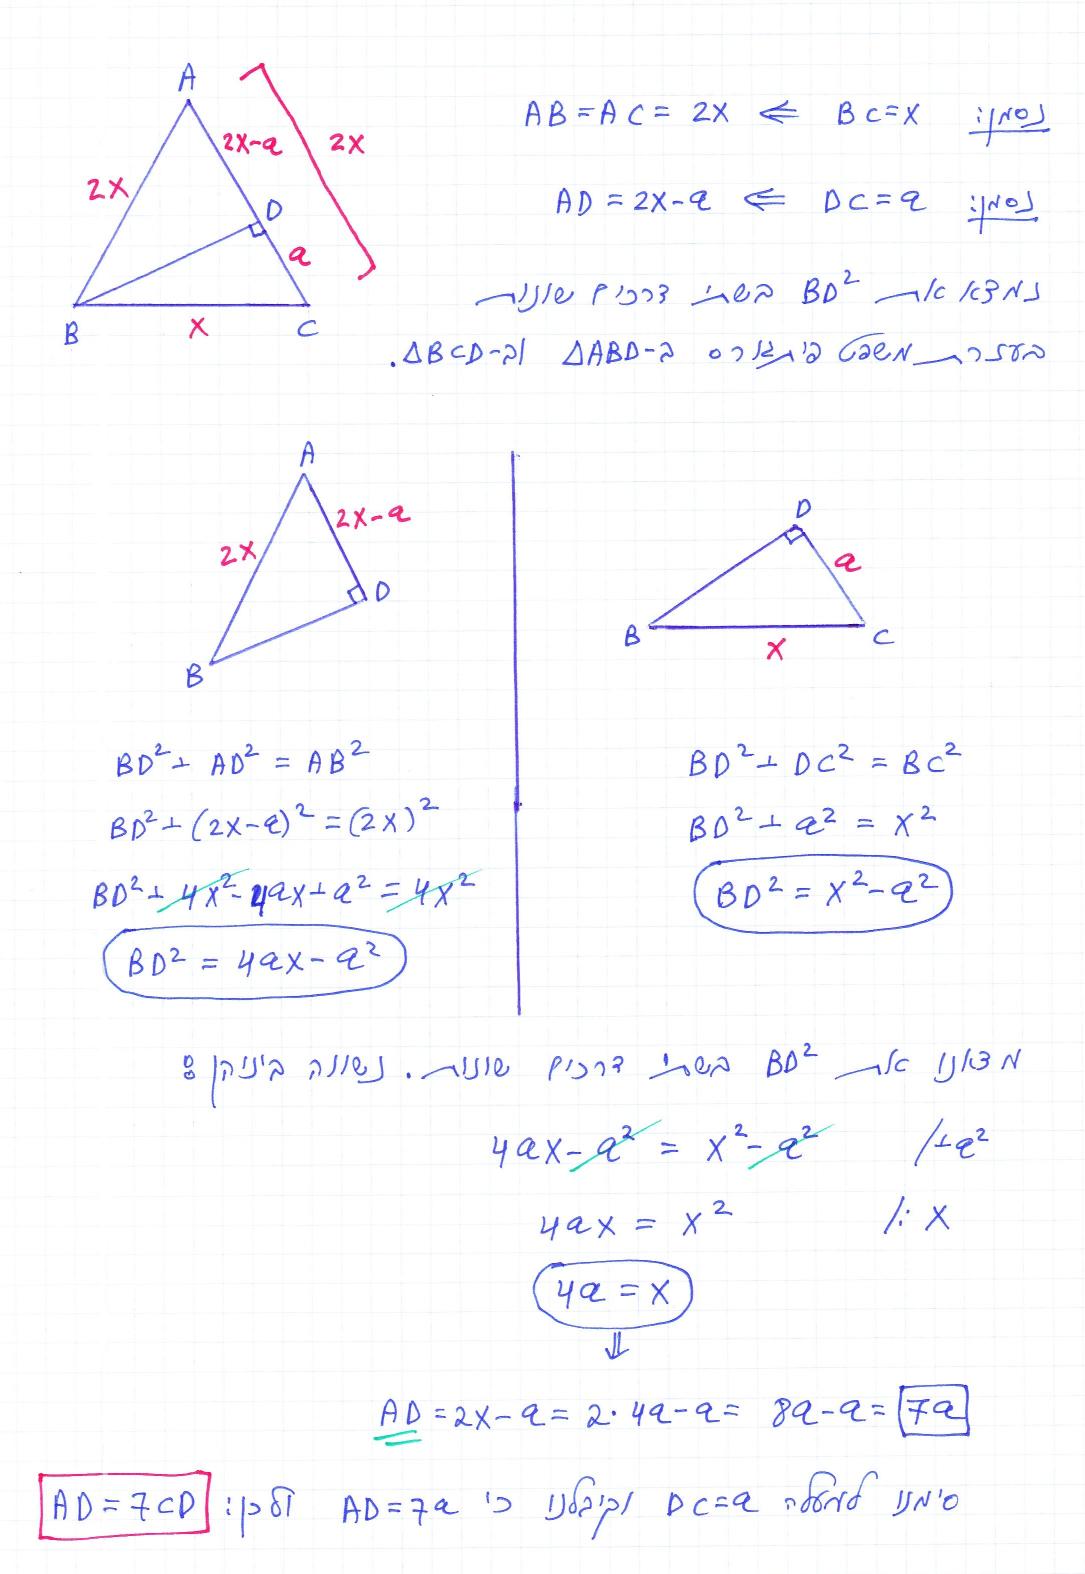 A
2x-a
2x
2x
D
a
B
x
C
נסמן: BC=x ⇐ AB=AC=2x
נסמן: DC=a ⇐ AD=2x-a
נמצא את BD² בשתי דרכים שונות
בעזרת משפט פיתגורס ב-ΔABD וב-ΔBCD.
A
2x-a
2x
D
B
D
a
B
C
x
BD²+AD²=AB²
BD²+(2x-a)²=(2x)²
BD²+4x²-4ax+a²=4x²
BD²=4ax-a²
BD²+DC²=BC²
BD²+a²=x²
BD²=x²-a²
מצאנו את BD² בשתי דרכים שונות. נשווה ביניהן:
4ax-a²=x²-a² /+a²
4ax=x² /:x
4a=x
⇓
AD=2x-a=2·4a-a=8a-a=7a
סימנו למעלה DC=a וקיבלנו כי AD=7a ולכן: AD=7CD